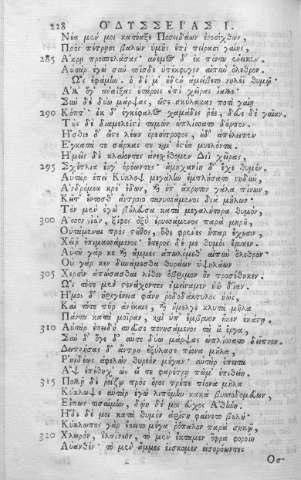 228 ΟΔΥΣΣΕΙΑΣ Ι.
Νέα μέν μοι κατέαξε Ποσειδάων ἐνοσίχθων,
Πρὸς πέτρῃσι βαλὼν ὑμῆς ἐπὶ πείρασι γαίης,
285 Ἄκρῃ προσπελάσας· ἄνεμος δ' ἐκ πόντου ἔνεικεν.
Αὐτὰρ ἐγὼ σὺν τοῖσδε ὑπέκφυγον αἰπὺν ὄλεθρον.
Ὣς ἐφάμην. ὁ δέ μ' οὐδὲν ἀμείβετο νηλέϊ θυμῷ·
Ἀλλ' ὅγ' ἀναΐξας ἑτάροις ἐπὶ χεῖρας ἴαλλε·
Σὺν δὲ δύω μάρψας, ὥστε σκύλακας ποτὶ γαίῃ
290 Κόπτ'· ἐκ δ' ἐγκέφαλος χαμάδις ῥέε, δεῦε δὲ γαῖαν.
Τοὺς δὲ διαμελεϊστὶ ταμὼν ὡπλίσσατο δόρπον·
Ἤσθιε δ' ὥστε λέων ὀρεσίτροφος, οὐδ' ἀπέλειπεν
Ἔγκατά τε σάρκας τε καὶ ὀστέα μυελόεντα.
Ἡμεῖς δὲ κλαίοντες ἀνεσχέθομεν Διῒ χεῖρας,
295 Σχέτλια ἔργ' ὁρόωντες· ἀμηχανίη δ' ἔχε θυμόν.
Αὐτὰρ ἐπεὶ Κύκλωψ μεγάλην ἐμπλήσατο νηδὺν,
Ἀνδρόμεα κρέ' ἔδων, καὶ ἐπ' ἄκρητον γάλα πίνων,
Κεῖτ' ἔντοσθ' ἄντροιο τανυσσάμενος διὰ μήλων·
Τὸν μὲν ἐγὼ βούλευσα κατὰ μεγαλήτορα θυμὸν,
300 Ἆσσον ἰὼν, ξίφος ὀξὺ ἐρυσσάμενος παρὰ μηροῦ,
Οὐτάμεναι πρὸς στῆθος, ὅθι φρένες ἧπαρ ἔχουσιν,
Χεῖρ' ἐπιμασσάμενος· ἕτερος δέ με θυμὸς ἔρυκεν.
Αὐτοῦ γάρ κε καὶ ἄμμες ἀπωλόμεθ' αἰπὺν ὄλεθρον·
Οὐ γάρ κεν δυνάμεσθα θυράων ὑψηλάων
305 Χερσὶν ἀπώσασθαι λίθον ὄβριμον ὃν προσέθηκεν.
Ὣς τότε μὲν στενάχοντες ἐμείναμεν ἠῶ δῖαν.
Ἦμος δ' ἠριγένεια φάνη ῥοδοδάκτυλος ἠὼς,
Καὶ τότε πῦρ ἀνέκαιε, καὶ ἤμελγε κλυτὰ μῆλα
Πάντα κατὰ μοῖραν, καὶ ὑπ' ἔμβρυον ἧκεν ἑκάστῃ·
310 Αὐτὰρ ἐπειδὴ σπεῦσε πονησάμενος τὰ ἃ ἔργα,
Σὺν δ' ὅγε δ' αὖτε δύω μάρψας ὡπλίσσατο δεῖπνον·
Δειπνήσας δ' ἄντρου ἐξήλασε πίονα μῆλα,
Ῥηϊδίως ἀφελὼν θυρεὸν μέγαν· αὐτὰρ ἔπειτα
Ἂψ ἐπέθηχ' ὡς εἴ τε φαρέτρῃ πῶμ' ἐπιθείη.
315 Πολλῇ δὲ ῥοίζῳ πρὸς ὄρος τρέπε πίονα μῆλα
Κύκλωψ· αὐτὰρ ἐγὼ λιπόμην κακὰ βυσσοδομεύων,
Εἴπως τισαίμην, δοίη δέ μοι εὖχος Ἀθήνη.
Ἥδε δέ μοι κατὰ θυμὸν ἀρίστη φαίνετο βουλή·
Κύκλωπος γὰρ ἔκειτο μέγα ῥόπαλον παρὰ σηκῷ,
320 Χλωρὸν, ἐλαΐνεον, τὸ μὲν ἔκταμεν ὄφρα φοροίη
Αὐανθέν· τὸ μὲν ἄμμες ἐΐσκομεν εἰσορόωντες
Ὅσ-